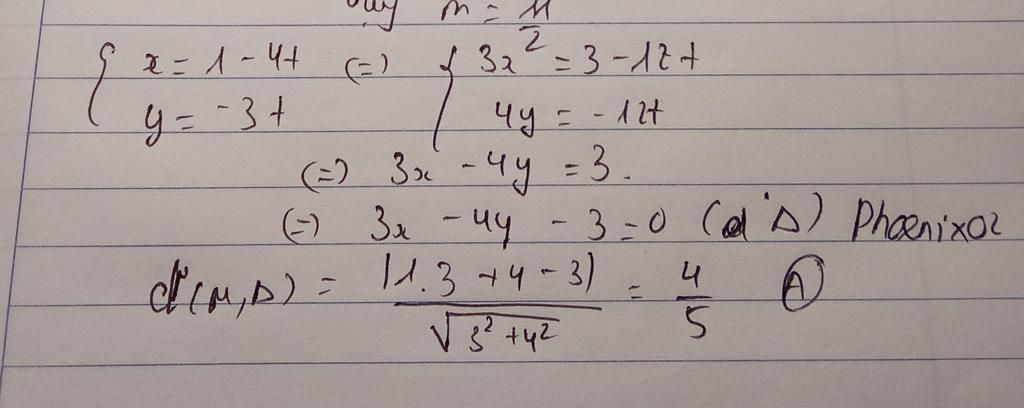 m = 11/2
{ x = 1 - 4t (=) { 3x = 3 - 12t
y = -3t 4y = -12t
(=) 3x - 4y = 3.
(=) 3x - 4y - 3 = 0 (d'Δ) Phoenix02
d(M,Δ) = |1.3 + 4 - 3| / √3² + 4² = 4/5 Ⓐ